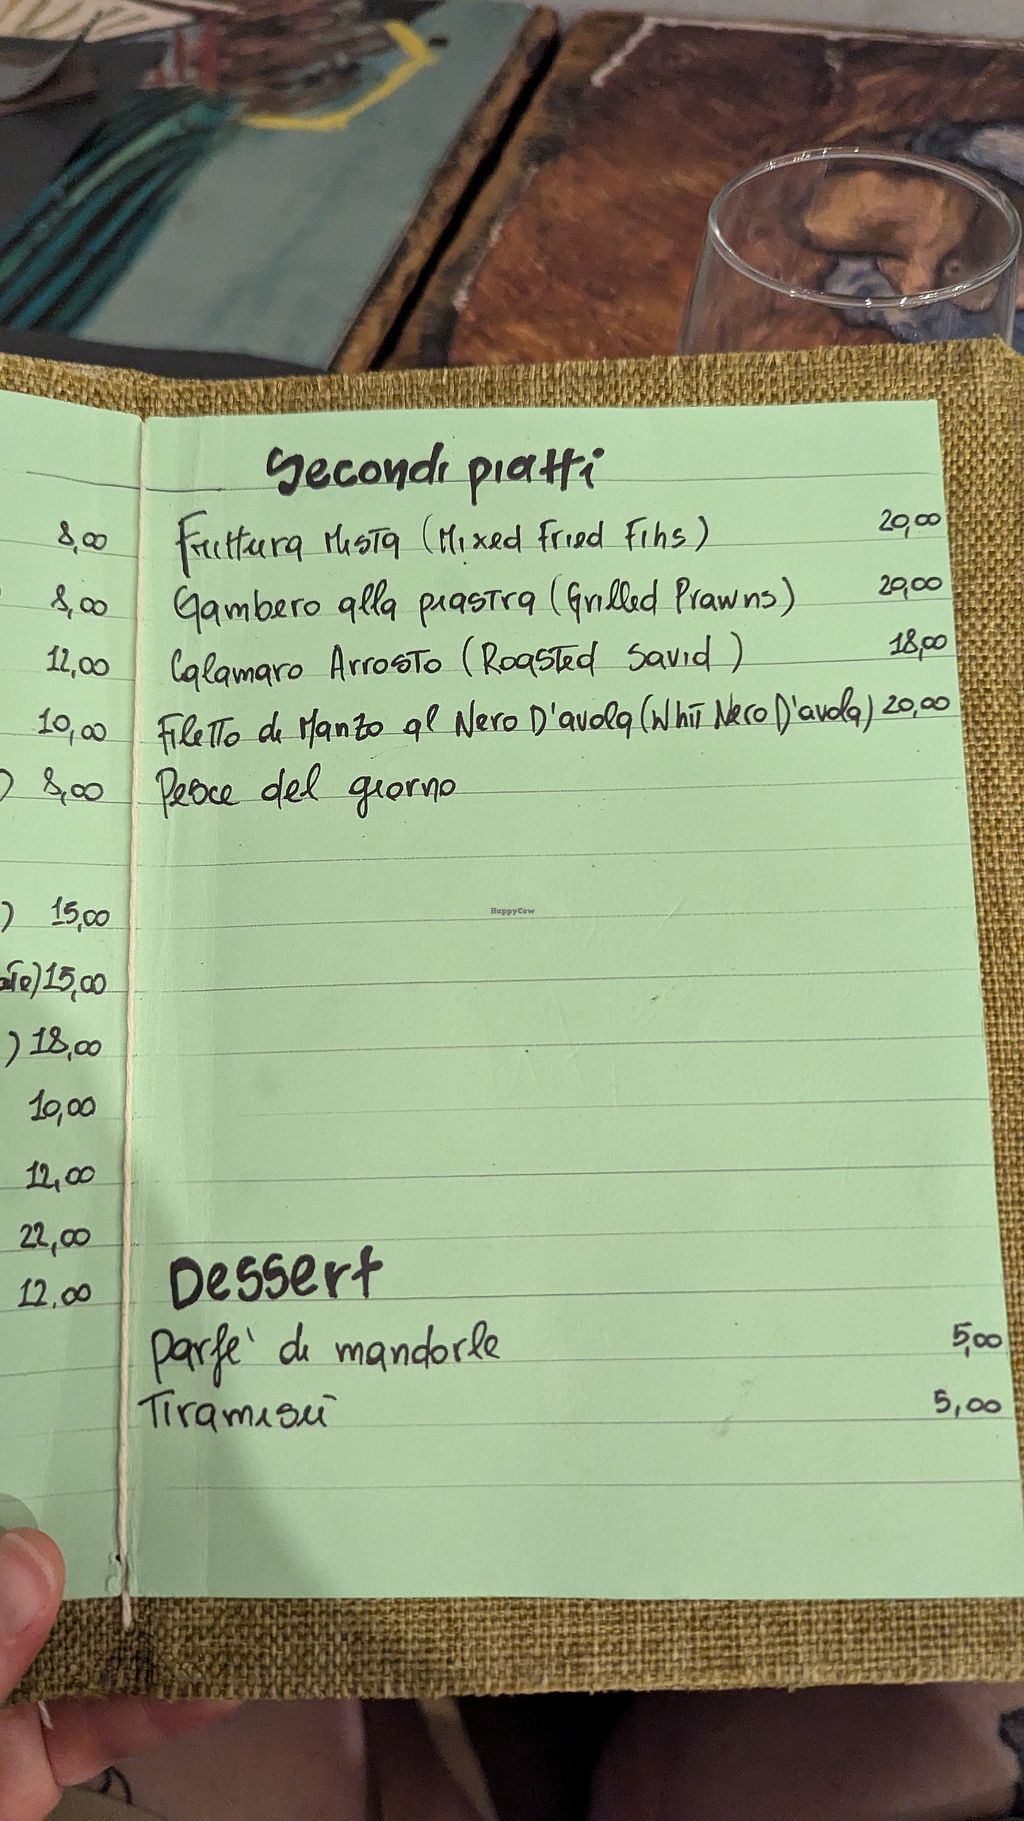 8,00
8,00
12,00
10,00
) 8,00
) 15,00
ate) 15,00
) 18,00
10,00
12,00
22,00
12.00
Secondi piatti
Frittura Mista (Mixed Fried Fihs) 20,00
Gambero alla piastra (Grilled Prawns) 20,00
Calamaro Arrosto (Roasted Savid) 18,00
Filetto di Manzo al Nero D'avola (Whit Nero D'avola) 20,00
Pesce del giorno
HappyCow
Dessert
Parfe' di mandorle 5,00
Tiramisù 5,00